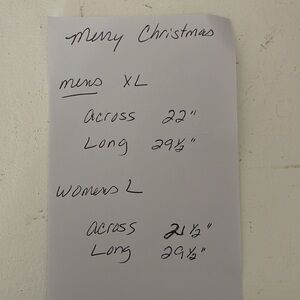 Merry Christmas
mens XL
across 22"
Long 29½"
womens L
across 21½"
Long 29½"